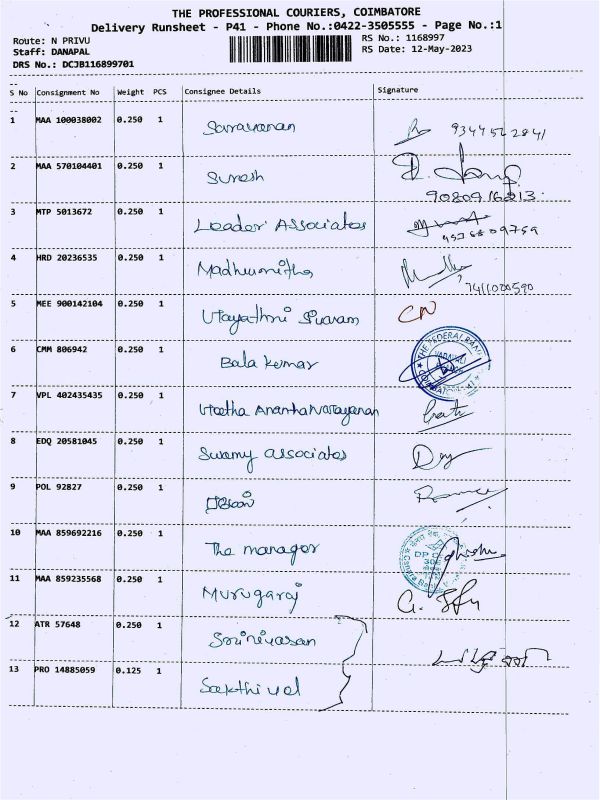 THE PROFESSIONAL COURIERS, COIMBATORE
Delivery Runsheet - P41 - Phone No.:0422-3505555 - Page No.:1
Route: N PRIVU RS No.: 1168997
Staff: DANAPAL RS Date: 12-May-2023
DRS No.: DCJB116899701
S No Consignment No Weight PCS Consignee Details Signature
1 MAA 100038002 0.250 1 Saravanan
2 MAA 570104401 0.250 1 Suresh
9080916213
3 MTP 5013672 0.250 1 Leader Associates
4 HRD 20236535 0.250 1 Madhumitha
7411000590
5 MEE 900142104 0.250 1 CN
6 CMM 806942 0.250 1 Bala Kumar THE FEDERAL BANK
7 VPL 402435435 0.250 1
8 EDQ 20581045 0.250 1 Swamy associates
9 POL 92827 0.250 1
10 MAA 859692216 0.250 1 The manager
11 MAA 859235568 0.250 1 Murugaraj
12 ATR 57648 0.250 1 Srinivasan
13 PRO 14885059 0.125 1 Sakthivel